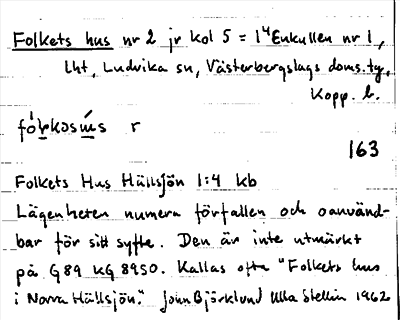 Folkets hus nr 2 jr kol 5 = 1⁴ Enkullen nr 1,
lht, Ludvika sn, Västerbergslags doms.ty,
Kopp. l.
r
163
Folkets Hus Hällsjön 1:4 kb
Lägenheten numera förfallen och oanvänd-
bar för sitt syfte. Den är inte utmärkt
på G89 kG 8950. Kallas ofta "Folkets hus
i Norra Hällsjön." John Björklund Ulla Stellin 1962